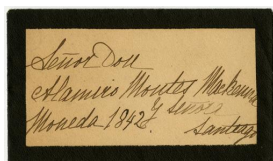 Señor Don
Alamiro Montes Mackenna
y señora
Moneda 1842.
Santiago